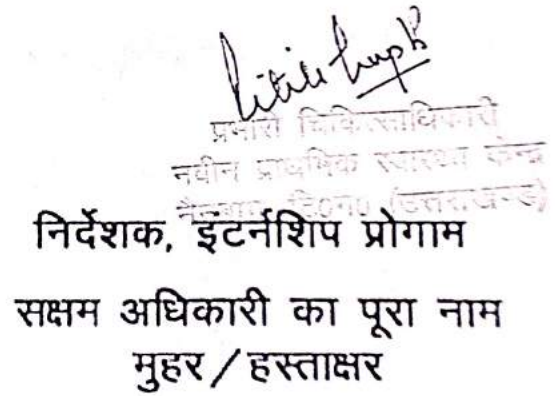 प्रभारी चिकित्साधिकारी
नवीन प्राथमिक स्वास्थ्य केन्द्र
टि०ग० (उत्तराखण्ड)
निर्देशक, इंटर्नशिप प्रोगाम
सक्षम अधिकारी का पूरा नाम
मुहर/हस्ताक्षर